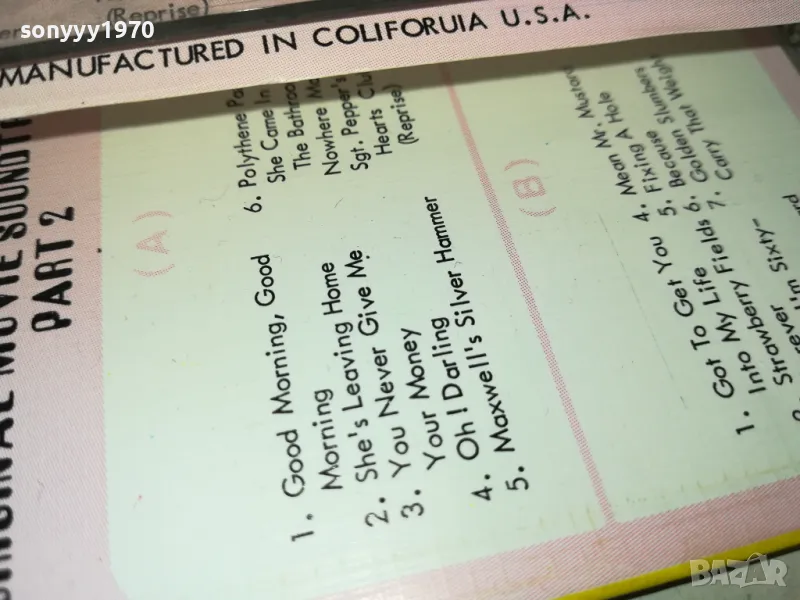 sonyyy1970
(Reprise)
MANUFACTURED IN COLIFORUIA U.S.A.
PART 2
(A)
1. Good Morning, Good
Morning
2. She's Leaving Home
3. You Never Give Me
Your Money
4. Oh! Darling
5. Maxwell's Silver Hammer
6. Polythene
She Came In
The
Nowhere
Sgt. Pepper's
Hearts
(Reprise)
(B)
1. Got To Get You
Into My Life
Strawberry Fields
Strawber
I'm Sixty-
4. Mean Mr. Mustard
Fixing A Hole
5. Because
6. Golden Slumbers
7. Carry That Weight
BAZAR
bg